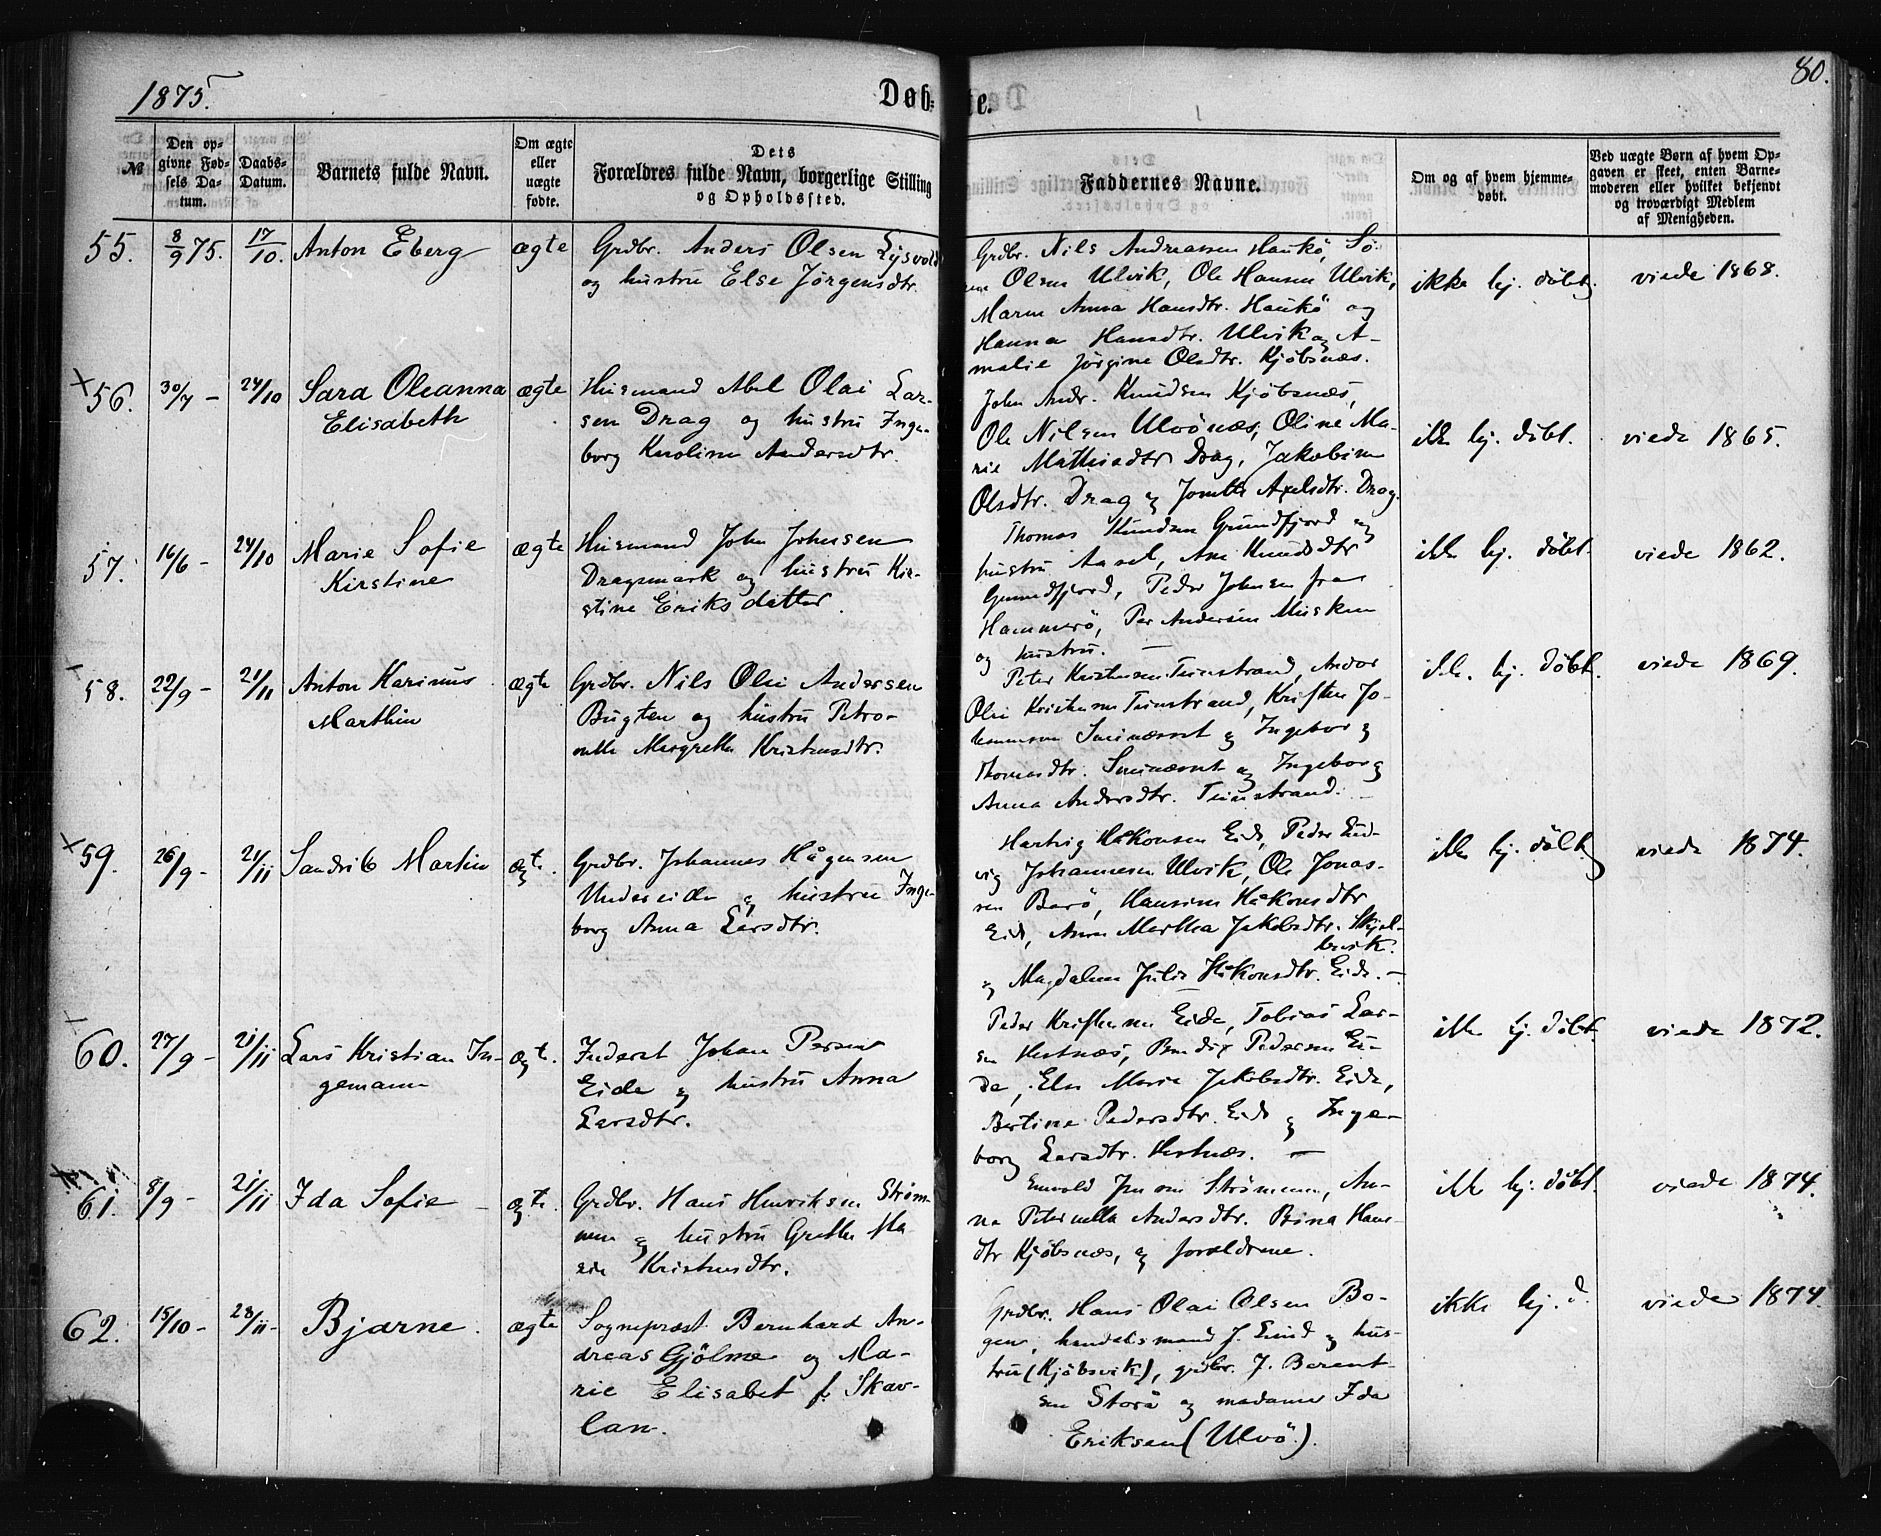 1875.
Døb-
te.
80.
№
Den op-
givne Fød-
sels Da-
tum.
Daabs-
Datum.
Barnets fulde Navn.
Om ægte
eller
uægte
fødte.
Dets
Forældres fulde Navn, borgerlige Stilling
og Opholdssted.
Faddernes Navne.
Om og af hvem hjemme-
døbt.
Ved uægte Børn af hvem Op-
gaven er skeet, enten Barne-
moderen eller hvilket bekjendt
og troværdigt Medlem
af Menigheden.
55.
8/9 75.
17/10.
Anton Eberg
ægte
Grdbr. Anders Olsen Lysvold
og hustru Else Jørgensdtr.
Grdbr. Nils Andreassen Haukö, Sö-
ren Olsen Ulvik, Ole Hansen Ulvik,
Maren Anna Hansdtr. Haukö og
Hanna Hansdtr. Ulvik og A-
malie Jørgine Olsdtr. Kjøbsnæs.
ikke hj. døbt.
viede 1868.
56.
30/7 -
24/10
Sara Oleanna
Elisabeth
ægte
Husmand Abel Olai Lar-
sen Drag og hustru Inge-
borg Karoline Andersdtr.
John Andr. Knudsen Kjøbsnæs,
Ole Nilsen Ulvönæs, Oline Ma-
rie Mathisdtr Drag, Jakobine
Olsdtr. Drag og Jonette Axelsdtr. Drag.
ikke hj. døbt.
viede 1865.
57.
16/6 -
24/10
Marie Sofie
Kirstine
ægte
Husmand John Johnsen
Dragsmark og hustru Kir-
stine Eriksdatter.
Thomas Knudsen Grundfjord og
hustru Aasel, Ane Knudsdtr
Grundfjord, Peder Johnsen fra
Hammerö, Per Andersen Musken
og hustru. —
ikke hj. døbt.
viede 1862.
58.
22/9 -
21/11
Anton Karinus
Marthin
ægte
Grdbr. Nils Olai Andersen
Bugten og hustru Petro-
nelle Margrethe Kristensdtr.
Peter Kristensen Teinstrand, Andor
Olai Kristensen Teinstrand, Kristen Jo-
hannesen Smineset og Ingeborg
Thomasdtr. Sminæset og Ingeborg
Anna Andersdtr. Teinstrand. —
ikke hj. døbt.
viede 1869.
59.
26/9 -
21/11
Sandrik Martin
ægte.
Grdbr. Johannes Hågensen
Undereide og hustru Inge-
borg Anna Larsdtr.
Hartvig Håkonsen Eide, Peder Lud-
vig Johannesen Ulvik, Ole Jonas-
sen Barö, Hansine Håkonsdtr
Eide, Anne Martha Jakobsdtr. Skjel-
lesvik
og Magdalene Julie Håkonsdtr. Eide. —
ikke hj. døbt
viede 1874.
60.
27/9 -
21/11
Lars Kristian In-
gemann
ægte.
Inderst Johan Persen
Eide og hustru Anna
Larsdtr.
Peder Kristensen Eide, Tobias Lar-
sen Hestnæs, Bendix Pedersen Ei-
de, Else Marie Jakobsdtr. Eide,
Bertine Pedersdtr. Eide og Inge-
borg Larsdtr. Hestnæs. —
ikke hj. døbt.
viede 1872.
61.
8/9 -
21/11
Ida Sofie
ægte.
Grdbr. Hans Henriksen Strøm-
men og hustru Grethe Ma-
rie Kristensdtr.
Enevold Jensen Strømmen, An-
na Peternella Andersdtr. Bina Hans-
dtr Kjøbsnæs, og forældrene.
ikke hj. døbt.
viede 1874.
62.
15/10 -
28/11 -
Bjarne.
ægte
Sognepræst Bernhard An-
dreas Gjölme og Ma-
rie Elisabet f. Skav-
lan.
Grdbr. Hans Olai Olsen Bo-
gen, handelsmand J. Lund og hus-
tru (Kjøbsvik), grdbr. J. Berent-
sen Storå og madame Ida
Eriksen (Ulvö).
ikke hj. d.
viede 1874.